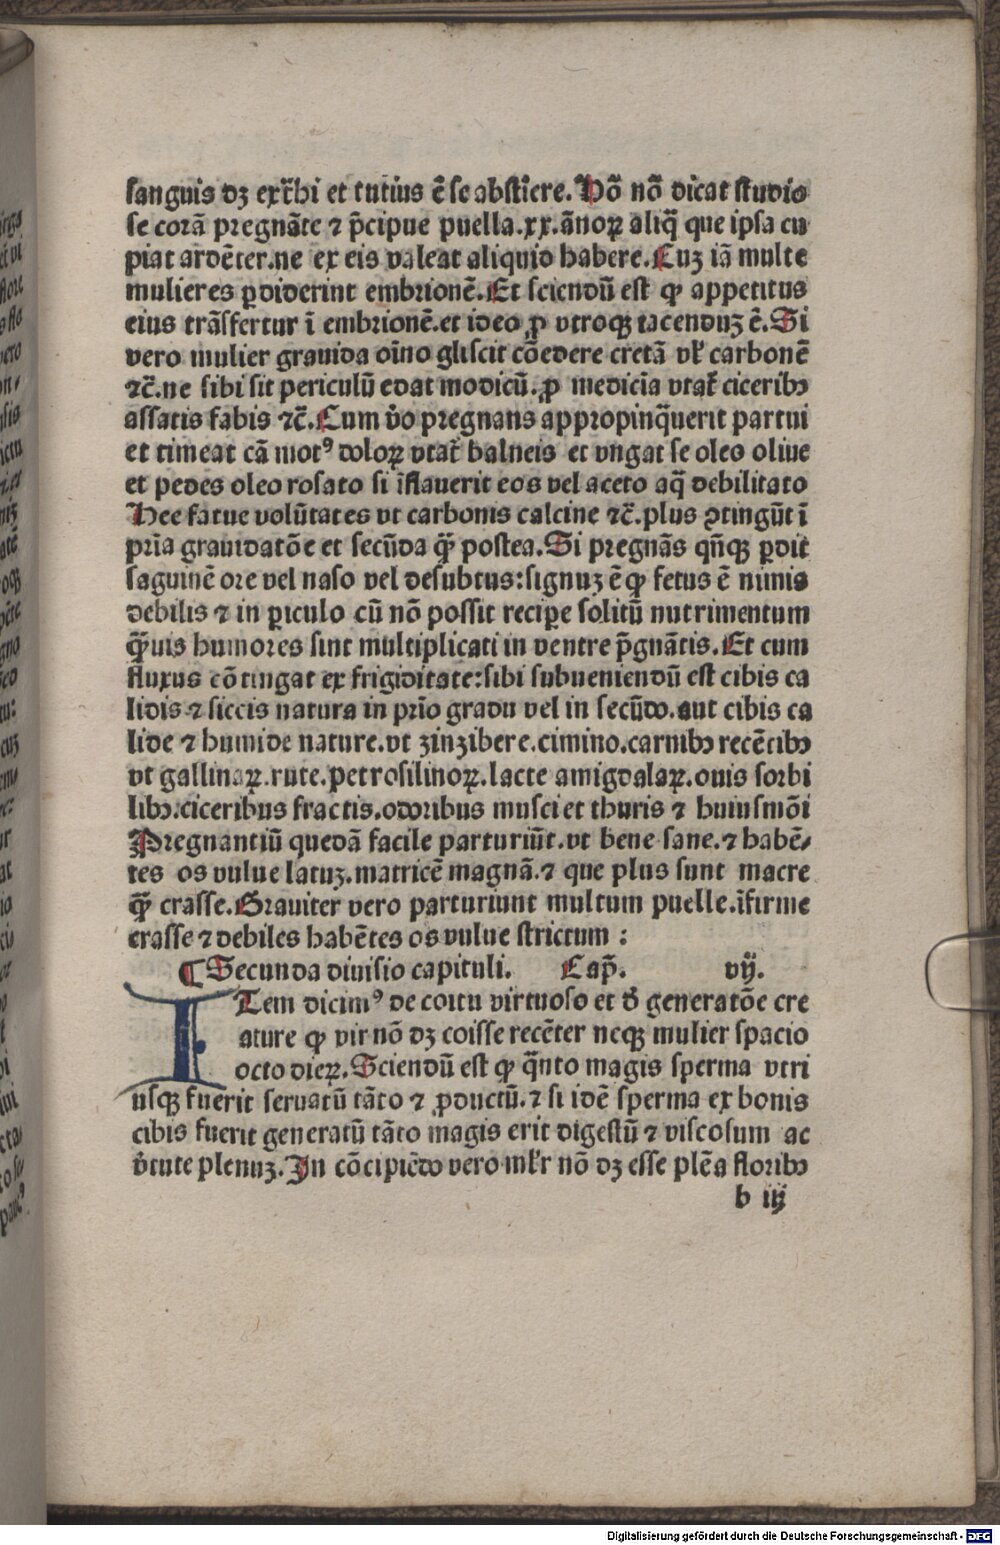 sanguis dꝫ extͬhi et tutius ē se abstīere. Hō nō dicat studio
se corā pregnāte ⁊ p̄cipue puella.xx.ānoꝝ aliq̄ que ipsa cu
piat ardēter.ne ex eis valeat aliquid habere. Cuꝫ iā multe
mulieres ꝑdiderint embrionē. Et sciendū est ꝙ appetitus
eius trāsfertur ī embrionē.et ideo ꝓ vtroqꝫ tacenduꝫ ē. Si
vero mulier grauida oīno gliscit cōedere cretā vl̓ carbonē
⁊c̄.ne sibi sit periculū edat modicū.ꝓ medicīa vtat̓ ciceribꝰ
assatis fabis ⁊c̄. Cum v̓o pregnans appropinq̄uerit partui
et timeat cā motꝰ doloꝝ vtat̓ balneis et vngat se oleo oliue
et pedes oleo rosato si īflauerit eos vel aceto aq̄ debilitato
Hee fatue volūtates vt carbonis calcine ⁊c̄.plus ꝯtingūt ī
pria grauidatōe et secūda q̄ꝫ postea. Si pregnās qn̄qꝫ ꝑdit
saguinē ore vel naso vel desubtus:signuꝫ ē ꝙ fetus ē nimis
debilis ⁊ in ꝑiculo cū nō possit reciꝑe solitū nutrimentum
q̄ꝫuis humores sint multiplicati in ventre p̄gnātis. Et cum
fluxus cōtingat ex frigiditate:sibi subueniendū est cibis ca
lidis ⁊ siccis natura in prīo gradu vel in secūdo.aut cibis ca
lide ⁊ humide nature.vt zinzibere.cimino.carnibꝰ recētibꝰ
vt gallinaꝝ.rute.petrosilinoꝝ.lacte amigdalaꝝ.ouis sorbi
libꝰ.ciceribus fractis.odoribus musci et thuris ⁊ huiusmōi
Pregnantiū quedā facile parturiūt.vt bene sane.⁊ habē⸗
tes os vulue latuꝫ.matricē magnā.⁊ que plus sunt macre
q̄ꝫ crasse. Grauiter vero parturiunt multum puelle.īfirme
crasse ⁊ debiles habētes os vulue strictum :
¶ Secunda diuisio capituli. Cap̄. vij.
ITem dicimꝰ de coitu virtuoso et d̓ generatōe cre
ature ꝙ vir nō dꝫ coisse recēter neqꝫ mulier spacio
octo dieꝝ. Sciendū est ꝙ q̄nto magis sperma vtri
usqꝫ fuerit seruatū tāto ⁊ ꝓductū.⁊ si idē sperma ex bonis
cibis fuerit generatū tāto magis erit digestū ⁊ viscosum ac
v̓tute plenuꝫ. In cōcipiēdo vero ml̓r nō dꝫ esse plēa floribꝰ
b iij
Digitalisierung gefördert durch die Deutsche Forschungsgemeinschaft - DFG